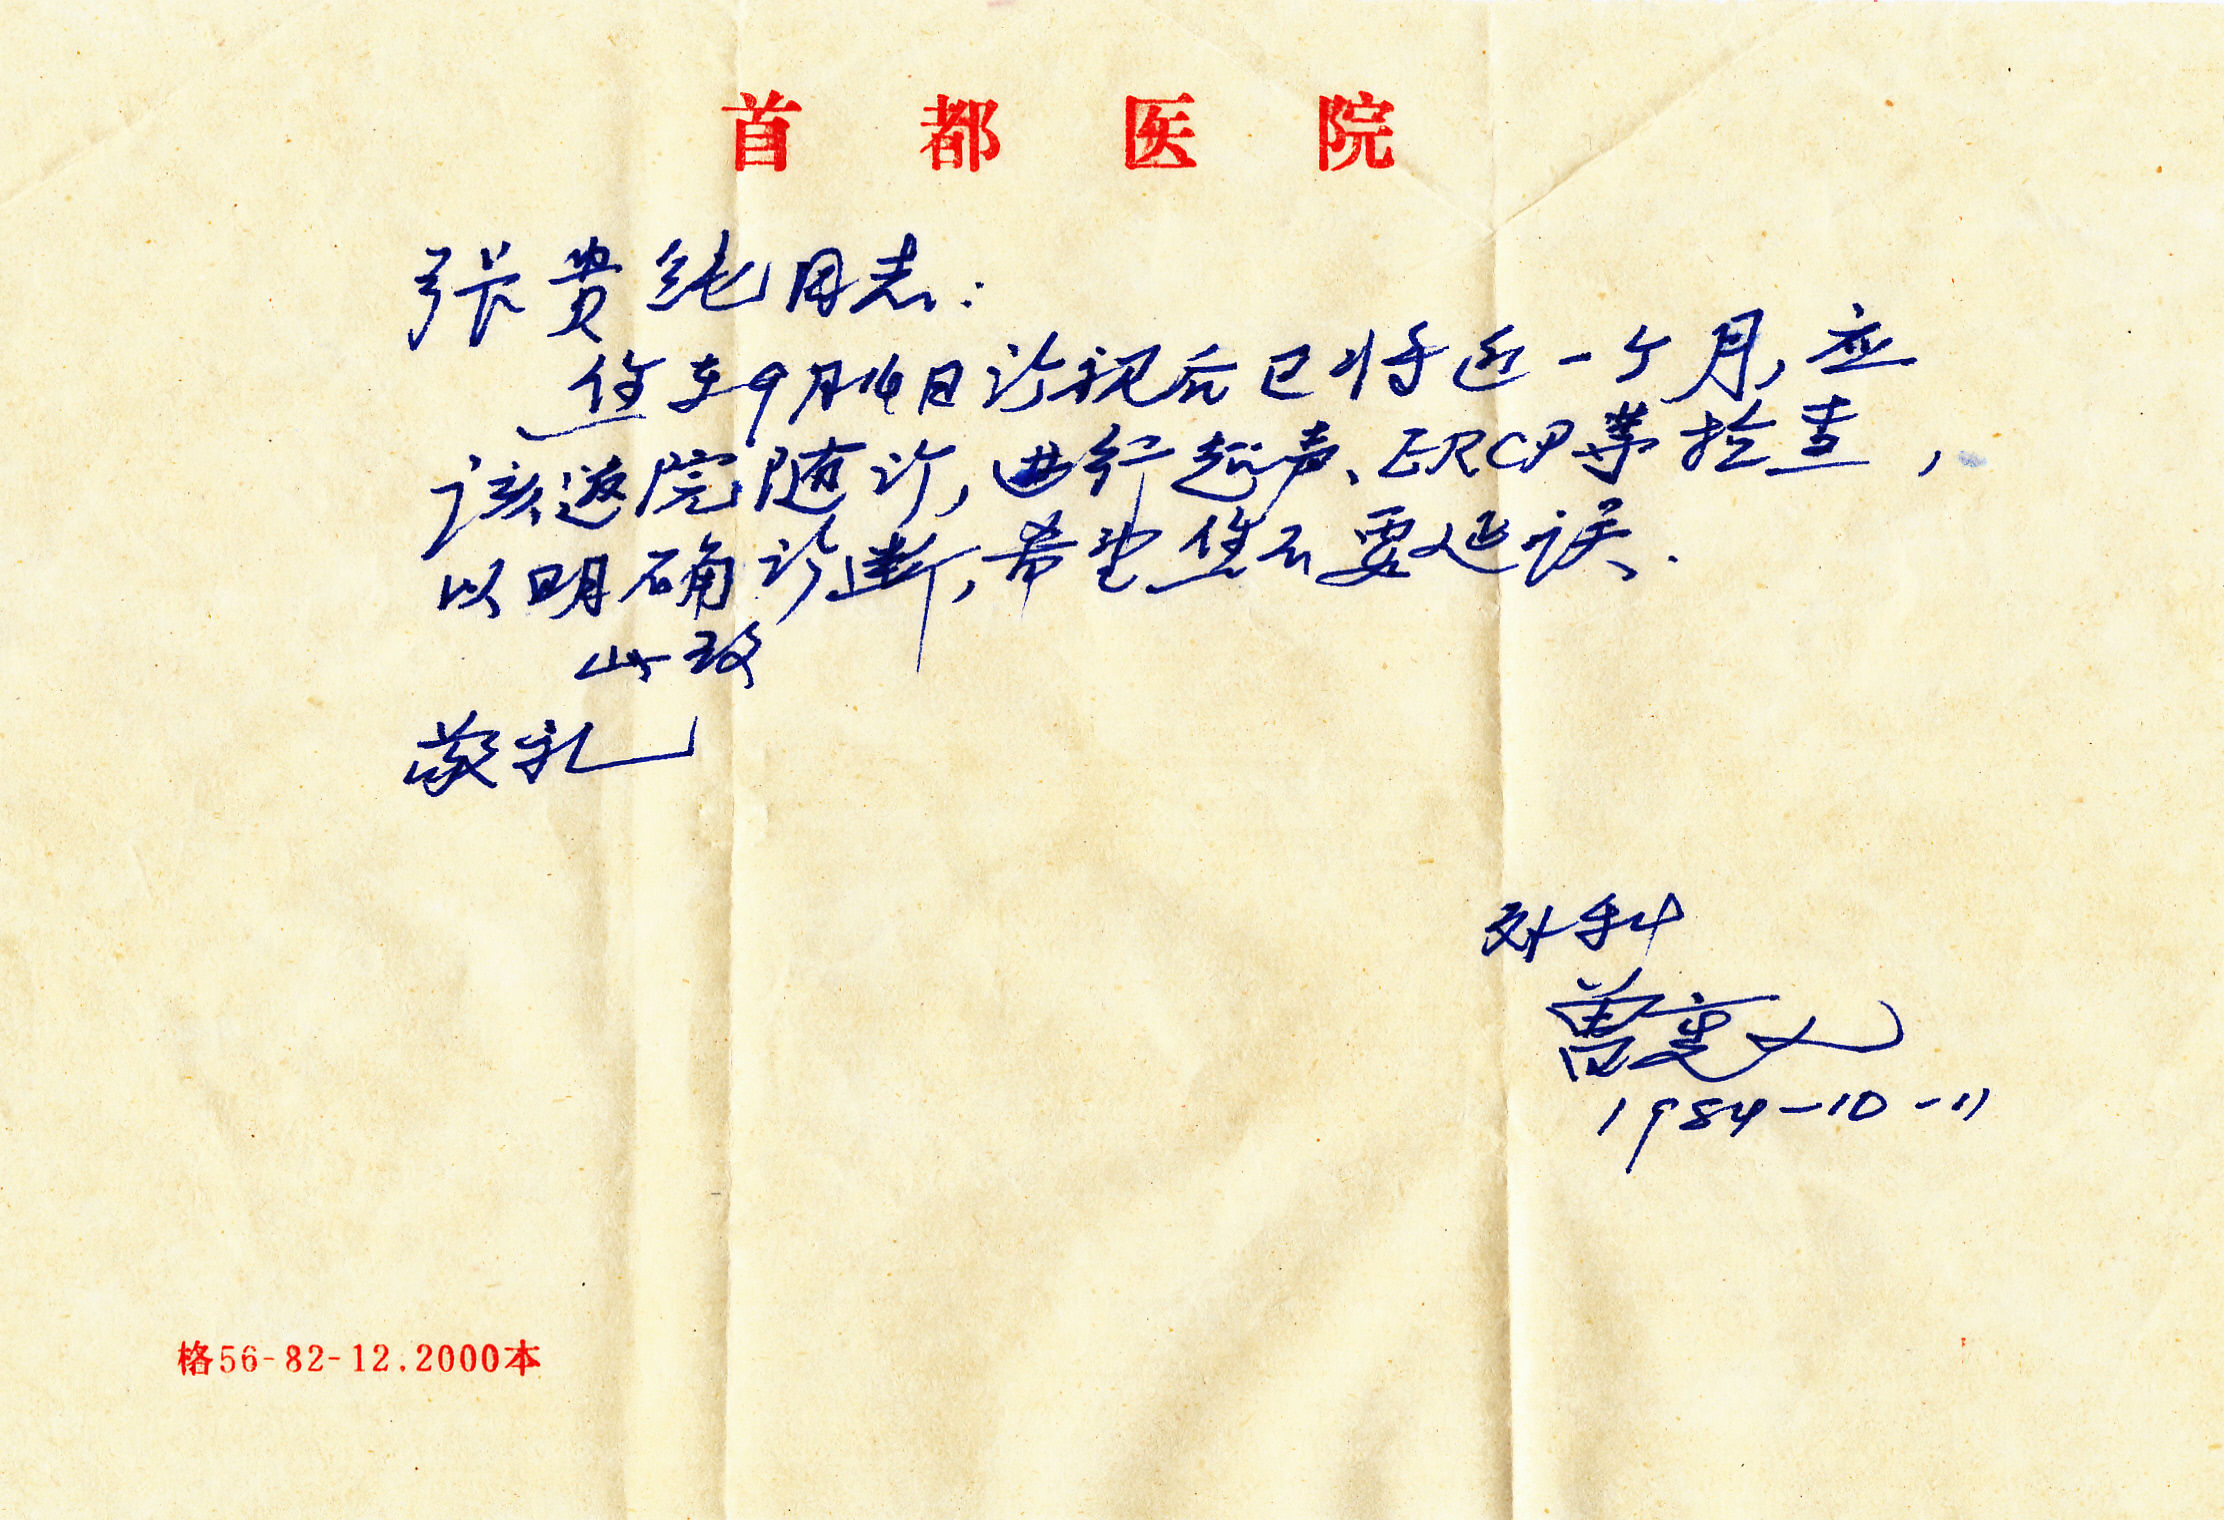 首都医院
张贵纯同志:
您在9月14日诊视后已将近一个月,应
该返院随诊,进行超声、ERCP等检查,
以明确诊断,希望您不要延误.
此致
敬礼
外科
曾宪九
1984-10-11
格56-82-12.2000本